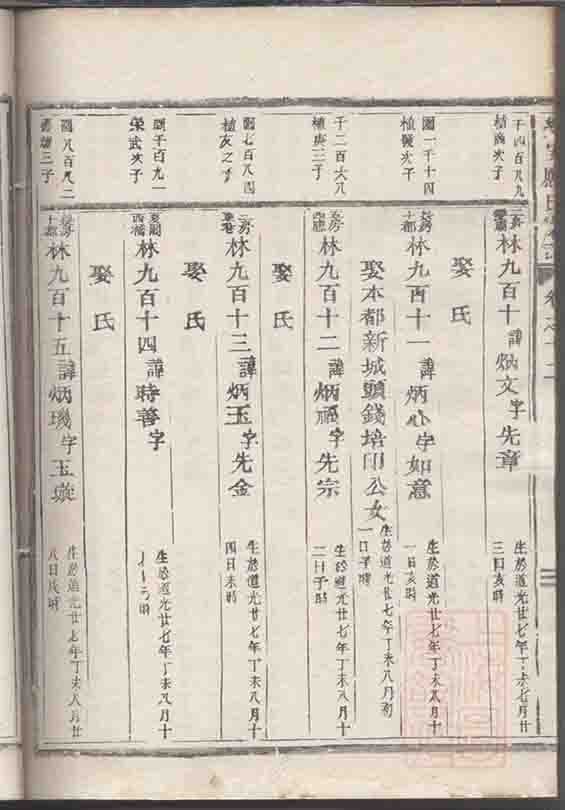 氏
卷之十二
千四百八九
植 次子
林九百十 諱炳文字先章
生於道光廿七年丁未七月廿
三日亥時
娶氏
園一千十四
植 次子
十都
林九百十一 諱炳心字如意
生於道光廿七年丁未八月十
一日亥時
娶本都新城頭錢培印公女
生於道光廿七年丁未八月初
一日子時
千三百六八
植庚三子
房
林九百十二 諱炳 字先宗
生於道光廿七年丁未八月十
二日子時
娶氏
園七百八四
植友之子
房
林九百十三 諱炳玉字先金
生於道光廿七年丁未八月十
四日未時
娶氏
園千百九一
榮武次子
西橋
林九百十四 諱時善字
生於道光廿七年丁未八月十
時
娶氏
園八百八二
三子
十都
林九百十五 諱炳璣字玉璇
生於道光廿七年丁未八月廿
八日戌時